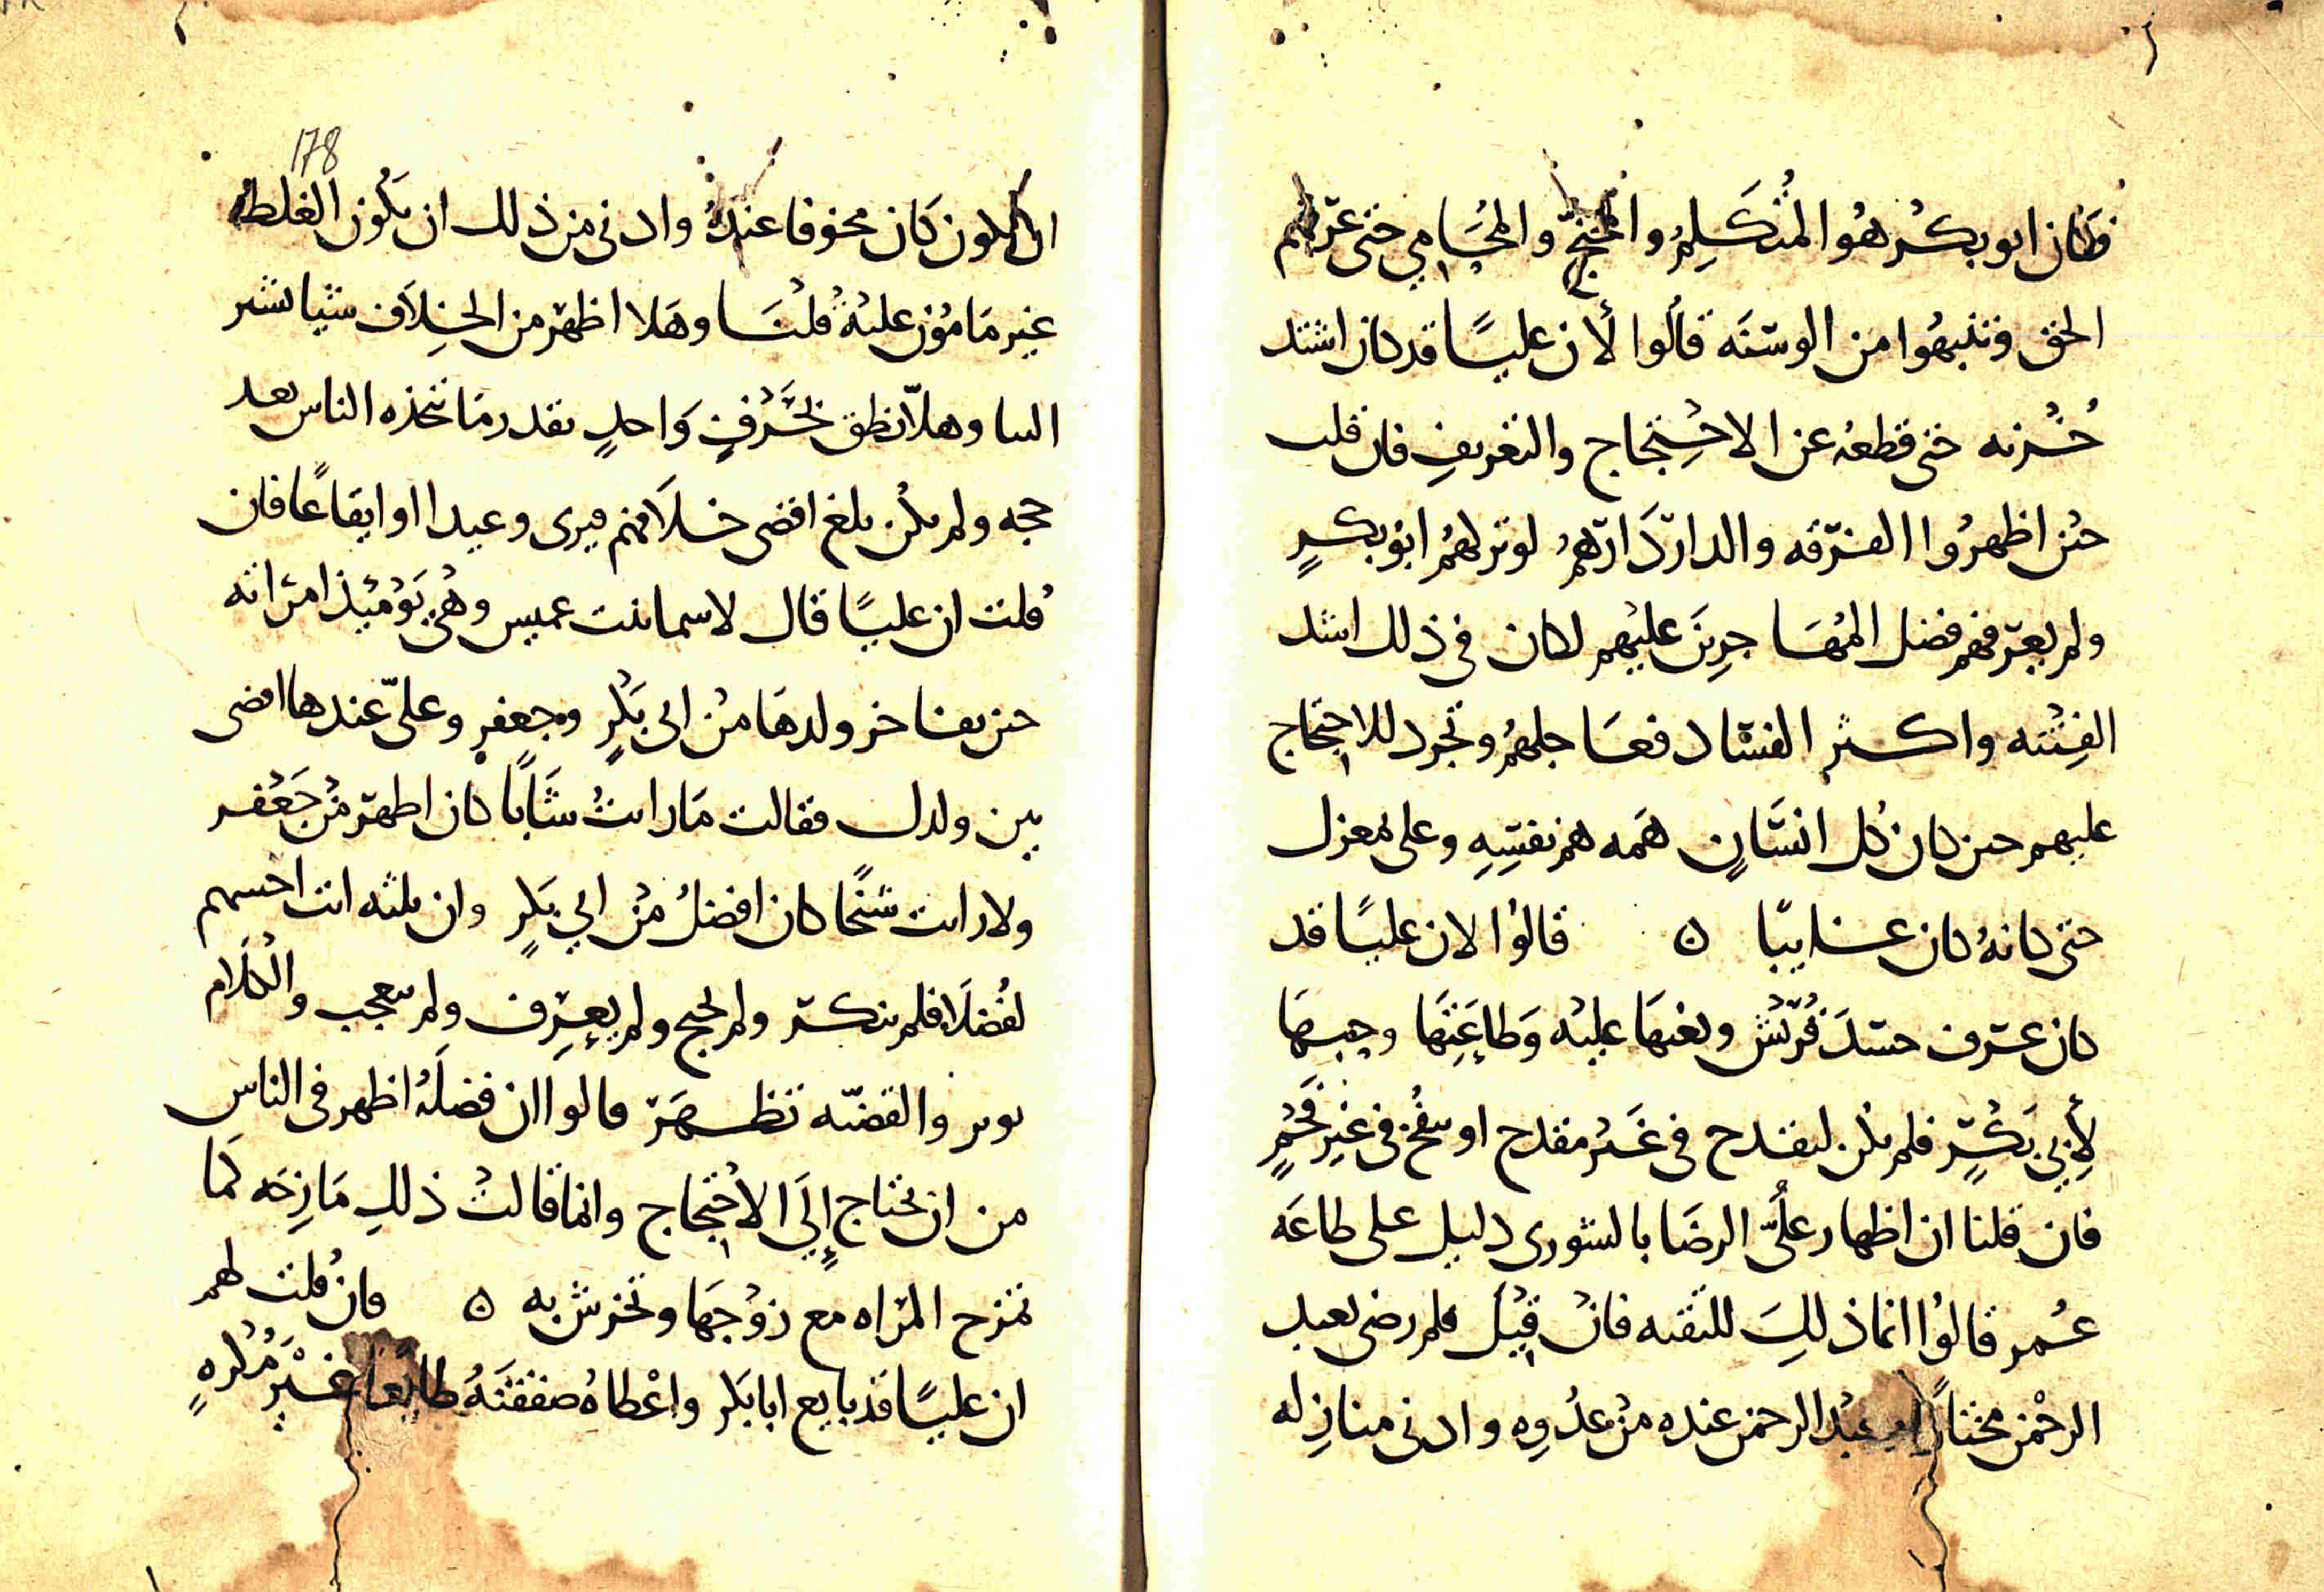 فكان ابو بكر هو المتكلم والمحتج والمحامي حتى عرفهم
الحق فتنبهوا من الوسنه قالوا لأن عليًا قد كان اشتد
حُزنه حتى قطعه عن الاحتجاج والتعريف فان قلت
حين اظهرُوا الفرقه والدار دَارهم لو ترلهم ابو بكرٍ
ولم يعرفهم فضل المهَاجرِينَ عليهم لكان في ذلك اشد
الفِتنه واكثر الفساد فعَاجلهمُ وتجرد للاحتجاج
عليهم حين كان كل انسَانٍ همَه هم نفسِهِ وعلى بمعزل
حتى كانهُ كان غايبًا ن قالوُا لان عليًا قد
كان عرف حسَدَ قُريش وبغيهَا عليه وَطاعَتِهَا وحبهَا
لأبِي بَكرٍ فلم يكن ليقدح في غَير مقدح او ينفخ في غيِر فَحْمٍ
فان قلنا ان اظهار علُيّ الرضَا بالشورى دليل على طاعَه
عُمر قالوُا انما ذلكَ للتقيه فان قيل فلم رضي بعبد
الرحمْن مختارًا وعبد الرحمن عنده من عدُوِه وادنى منازله
ان يكون كان مخوفا عندهُ وادنى من ذلك ان يكون الغلط
غير مَامُون عليه قلنَا وهَلا اظهر من الخِلاَف شيا نشير
اليها وهلاّ نطق بحَرفٍ وَاحدٍ بقدر مَا تتخذه الناس بعد
حجه ولم يكن بلغ اقضى خلاَفهم فيرى وعيدا او ايقاعًا فان
قُلت ان عليًا قال لاسما بنت عميس وهُي يَومئِذ امرَاته
حين يفاخر ولدهَا منُ ابى بَكرٍ وجعفرٍ وعلىّ عندها اقضى
بين ولدك فقالت مَا رايتُ شَابًا كان اطهر من جَعْفر
ولا رايت شيخًا كان افضلُ من ابي بَكرٍ وان ثلثه انت اخسهم
لفُضلَا فلم ينكر ولم يحتج ولم يعِرف ولم يتعجب والكلاَم
يوثر والقضيّه تظهَر قالوا ان فضلَهُ اظهر في الناس
من ان يحتاج إلَي الاحتجاج وانما قالت ذلكِ مَازِحَه كَما
تمزح المراه مع زوْجهَا وتحرش به ن فان قُلت لهم
ان عليًا قد بايع ابا بَكر واعْطاهُ صفقتَهُ طايعًا غَيْر مُكرهٍ
178